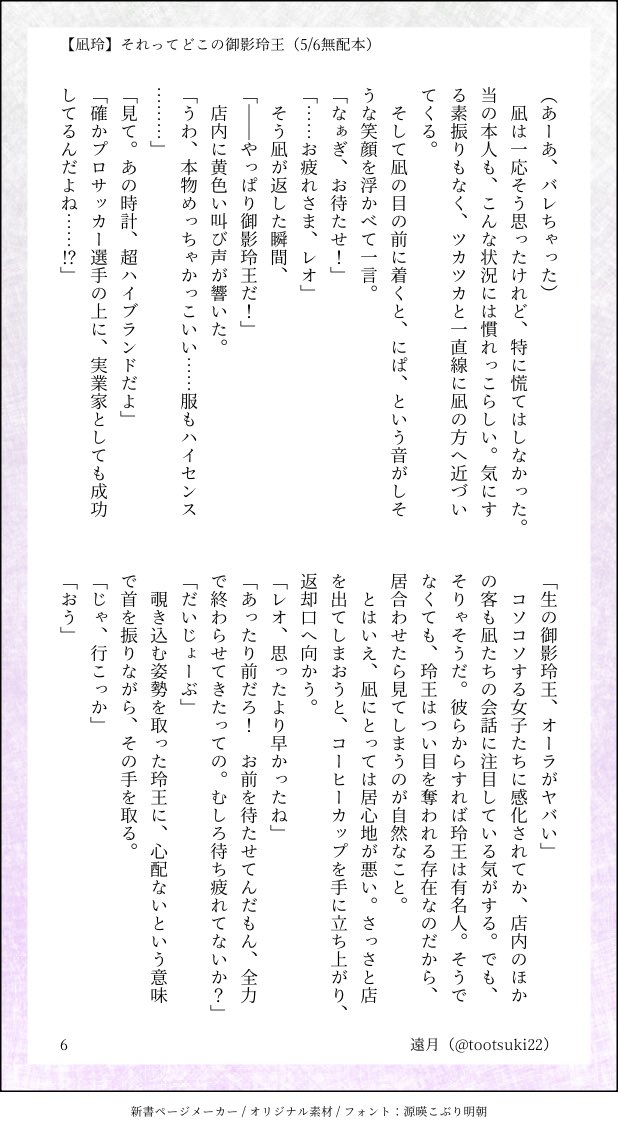 【凪玲】それってどこの御影玲王（5/6無配本）
（あーあ、バレちゃった）
　凪は一応そう思ったけれど、特に慌てはしなかった。
当の本人も、こんな状況には慣れっこらしい。気にす
る素振りもなく、ツカツカと一直線に凪の方へ近づい
てくる。
　そして凪の目の前に着くと、にぱ、という音がしそ
うな笑顔を浮かべて一言。
「なぁぎ、お待たせ！」
「……お疲れさま、レオ」
　そう凪が返した瞬間、
「――やっぱり御影玲王だ！」
　店内に黄色い叫び声が響いた。
「うわ、本物めっちゃかっこいい……服もハイセンス
………」
「見て。あの時計、超ハイブランドだよ」
「確かプロサッカー選手の上に、実業家としても成功
してるんだよね……!?」
「生の御影玲王、オーラがヤバい」
　コソコソする女子たちに感化されてか、店内のほか
の客も凪たちの会話に注目している気がする。でも、
そりゃそうだ。彼らからすれば玲王は有名人。そうで
なくても、玲王はつい目を奪われる存在なのだから、
居合わせたら見てしまうのが自然なこと。
　とはいえ、凪にとっては居心地が悪い。さっさと店
を出てしまおうと、コーヒーカップを手に立ち上がり、
返却口へ向かう。
「レオ、思ったより早かったね」
「あったり前だろ！　お前を待たせてんだもん、全力
で終わらせてきたっての。むしろ待ち疲れてないか？」
「だいじょーぶ」
　覗き込む姿勢を取った玲王に、心配ないという意味
で首を振りながら、その手を取る。
「じゃ、行こっか」
「おう」
6
遠月（@tootsuki22）
新書ページメーカー / オリジナル素材 / フォント：源暎こぶり明朝